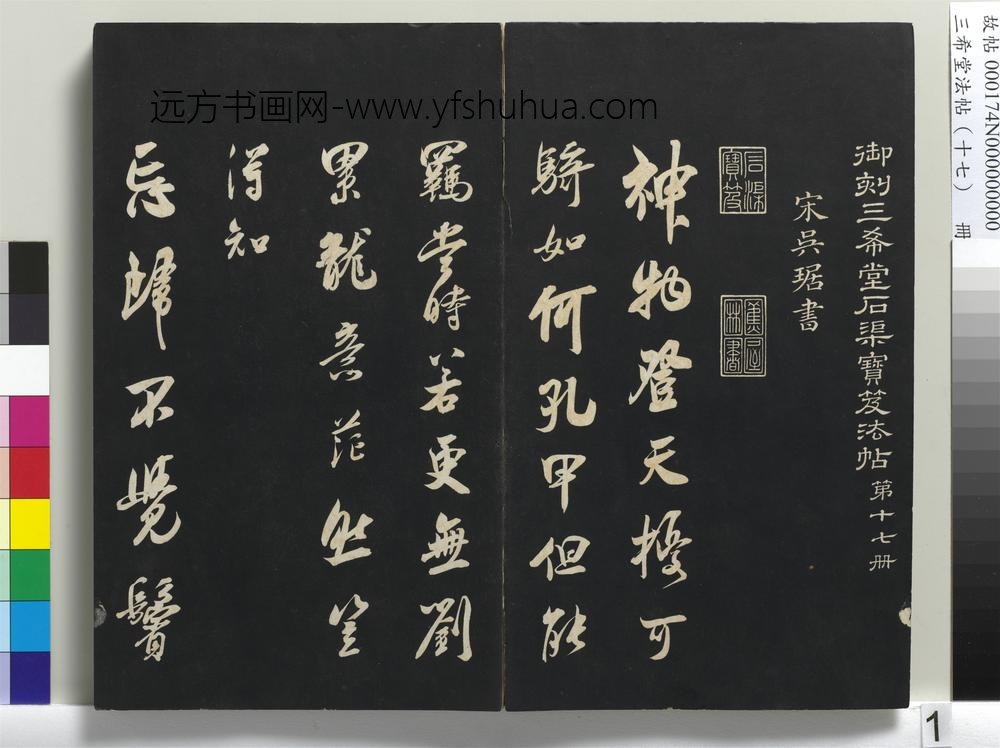 故帖 000174N000000000
三希堂法帖（十七） 冊
远方书画网-www.yfshuhua.com
御刻三希堂石渠寶笈法帖 第十七册
宋吳琚書
石渠寶笈
蕉林書屋
神物登天擾可
騎如何孔甲但能
羈當時若更無劉
累龍意茫然豈
得知
忘歸不覺鬢
1